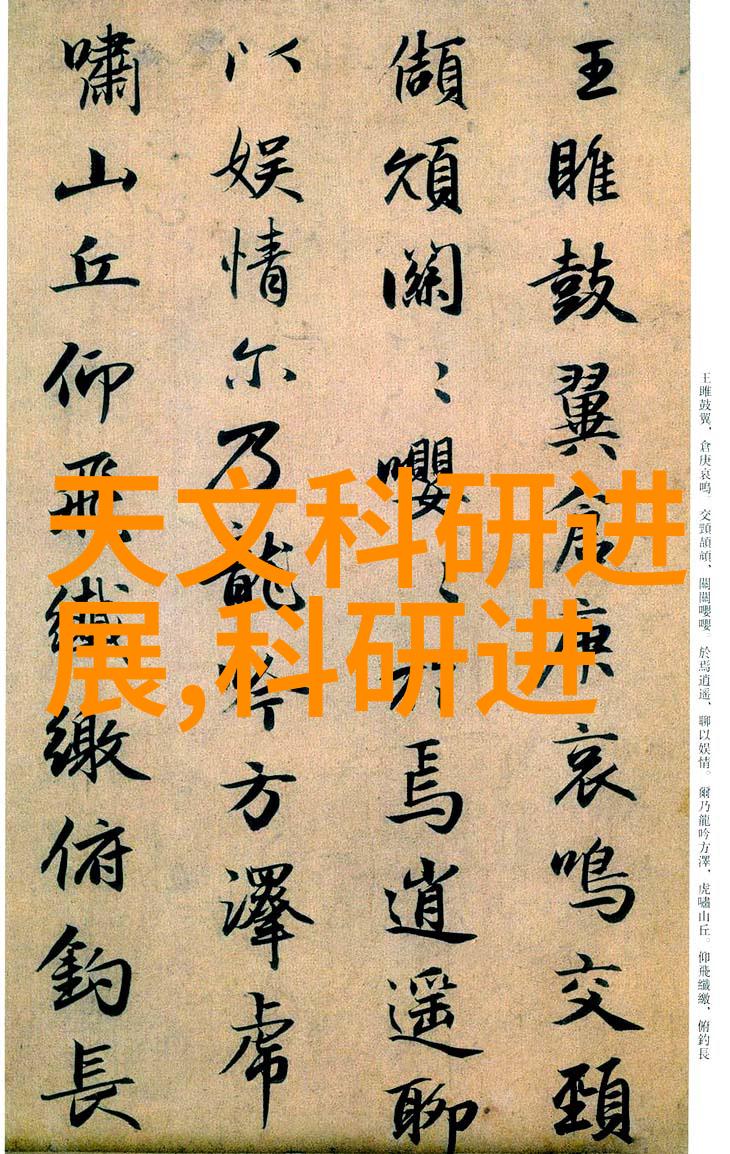 天文科研进
展,科研进
王雎鼓翼倉庚哀鳴交頸
頡頏關〻嚶〻於焉逍遥聊
以娱情尔乃龍吟方澤虎
嘯山丘仰飛纖繳俯釣長
王雎鼓翼，倉庚哀鳴。交頸頡頏，關關嚶嚶。於焉逍遥，聊以娱情。爾乃龍吟方澤，虎嘯山丘。仰飛纖繳，俯釣長